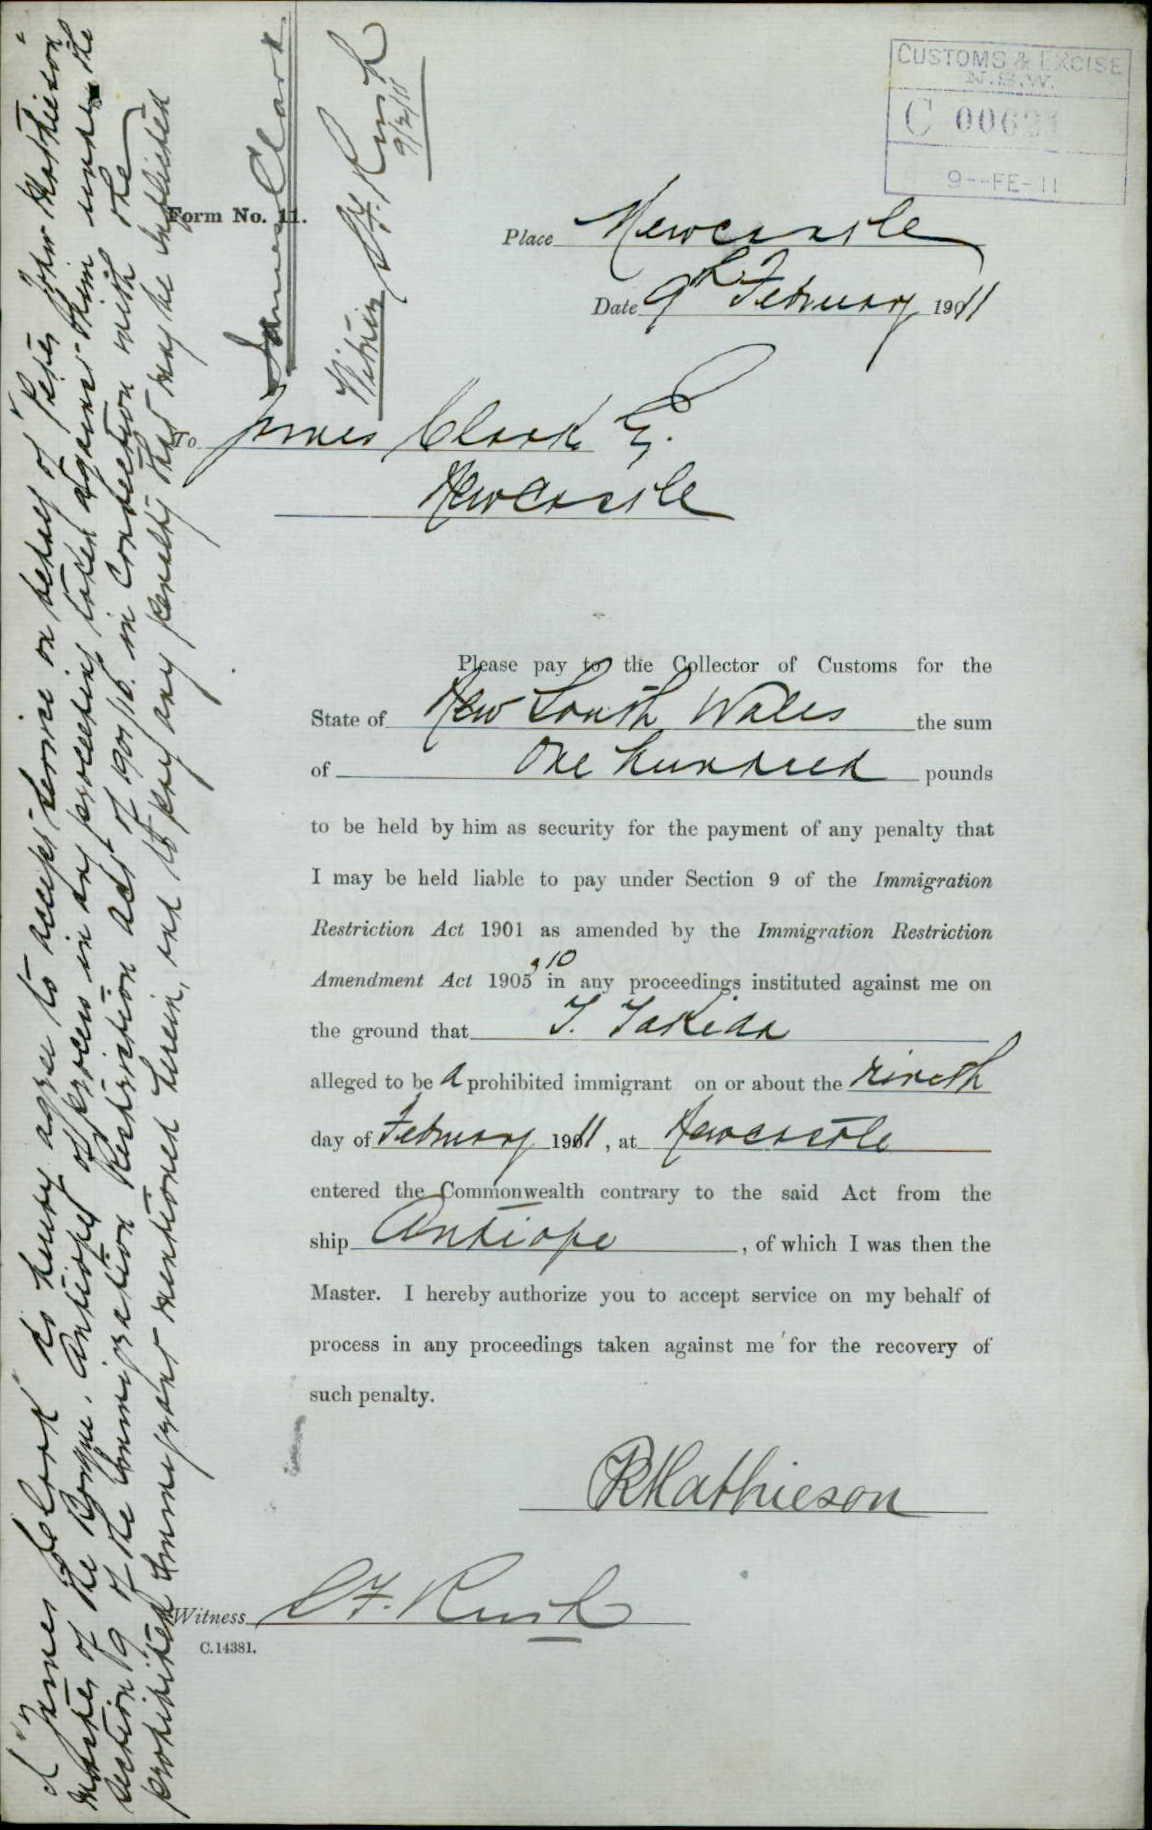 CUSTOMS & EXCISE
N.S.W.
C 0062
9--FE-11
Form No. 11.
Place Newcastle
Date 9th February 1911
To James Clark Esq.
Newcastle
Please pay to the Collector of Customs for the
State of New South Wales the sum
of One hundred pounds
to be held by him as security for the payment of any penalty that
I may be held liable to pay under Section 9 of the Immigration
Restriction Act 1901 as amended by the Immigration Restriction
Amendment Act 1905, 10 in any proceedings instituted against me on
the ground that T. Takeda
alleged to be a prohibited immigrant on or about the nineth
day of February 1911, at Newcastle
entered the Commonwealth contrary to the said Act from the
ship Antiope, of which I was then the
Master. I hereby authorize you to accept service on my behalf of
process in any proceedings taken against me for the recovery of
such penalty.
Mathieson
Witness F. Rush
C.14381.
I "James Clark" do hereby agree to accept service on behalf of "Peter John Mathieson"
Master of the Barque. Antiope of process in any proceedings taken against him under the
section 9 of the Immigration Restriction Act of 1901/10. in connection with the
prohibited Immigrant mentioned herein, and to pay any penalty that may be inflicted
James Clark
Witness F. Rush
9/2/11